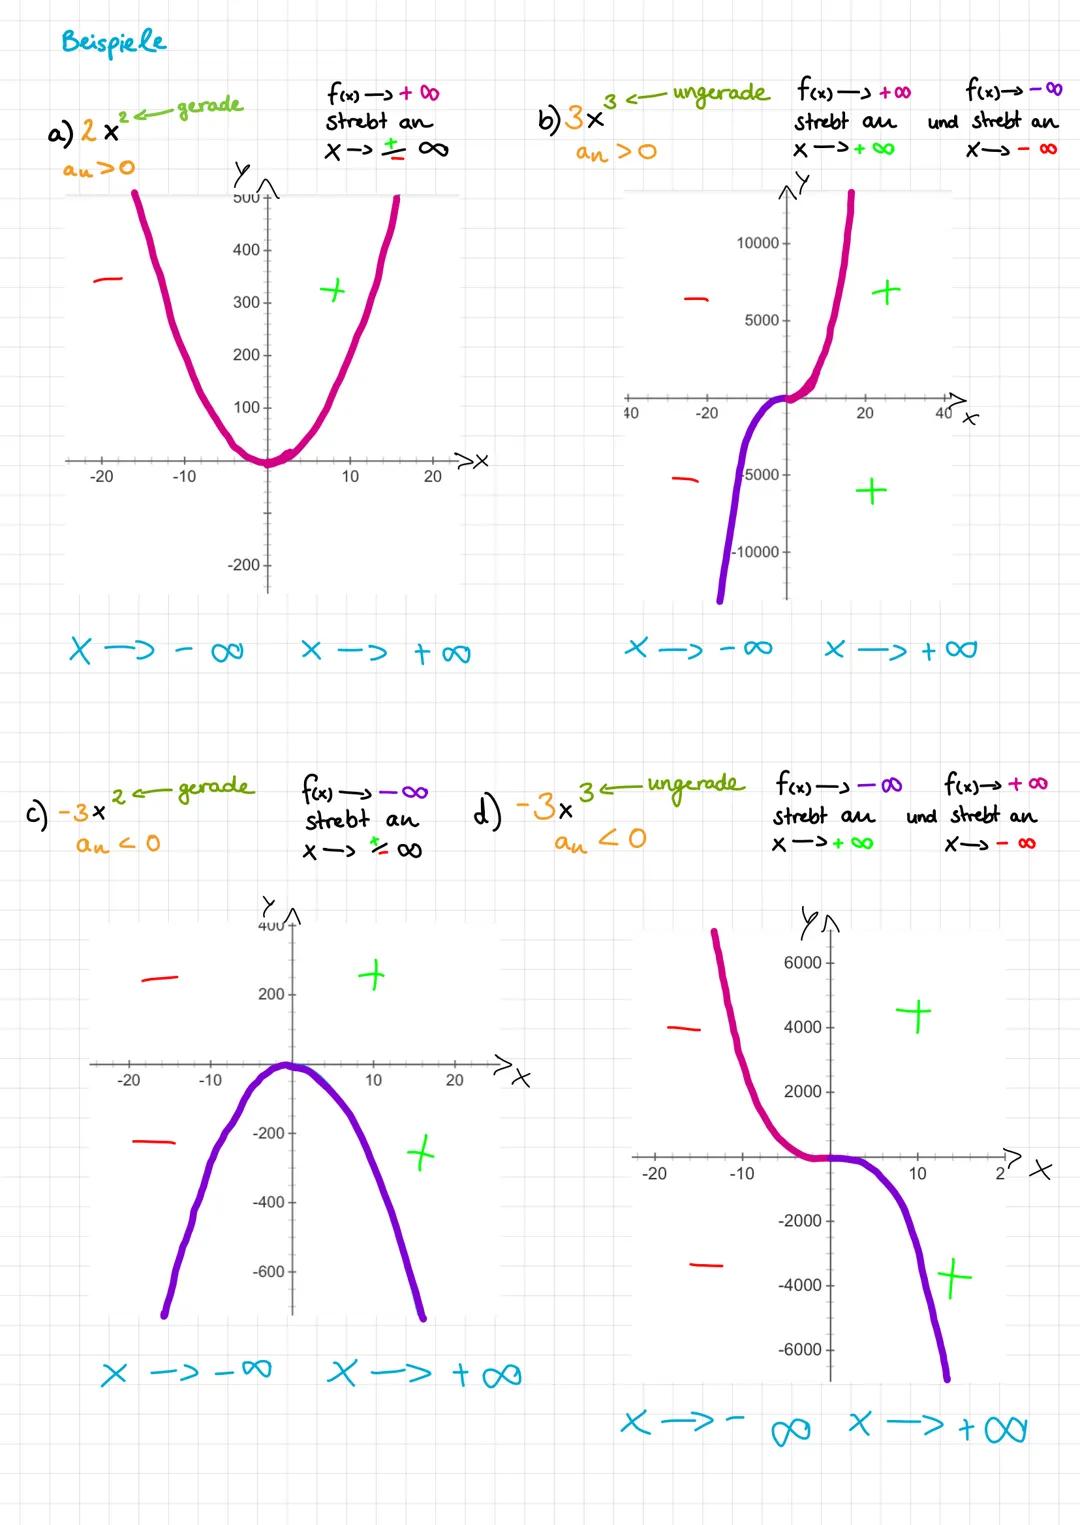 Beispiele
a) 2x² ← gerade
an > 0
f(x) → + ∞
strebt an
x → ± ∞
b) 3x³ ← ungerade
an > 0
f(x) → + ∞
strebt an
x → + ∞
und
f(x) → - ∞
strebt an
x → - ∞
Y
500
400
300
200
100
-200
-20 -10 10 20 x
- +
Y
10000
5000
-5000
-10000
40 -20 20 40 x
- +
- +
x → - ∞ x → + ∞
x → - ∞ x → + ∞
c) -3x² ← gerade
an < 0
f(x) → - ∞
strebt an
x → ± ∞
d) -3x³ ← ungerade
an < 0
f(x) → - ∞
strebt an
x → + ∞
und
f(x) → + ∞
strebt an
x → - ∞
Y
400
200
-200
-400
-600
-20 -10 10 20 x
- +
- +
Y
6000
4000
2000
-2000
-4000
-6000
-20 -10 10 2 x
- +
- +
x → - ∞ x → + ∞
x → - ∞ x → + ∞